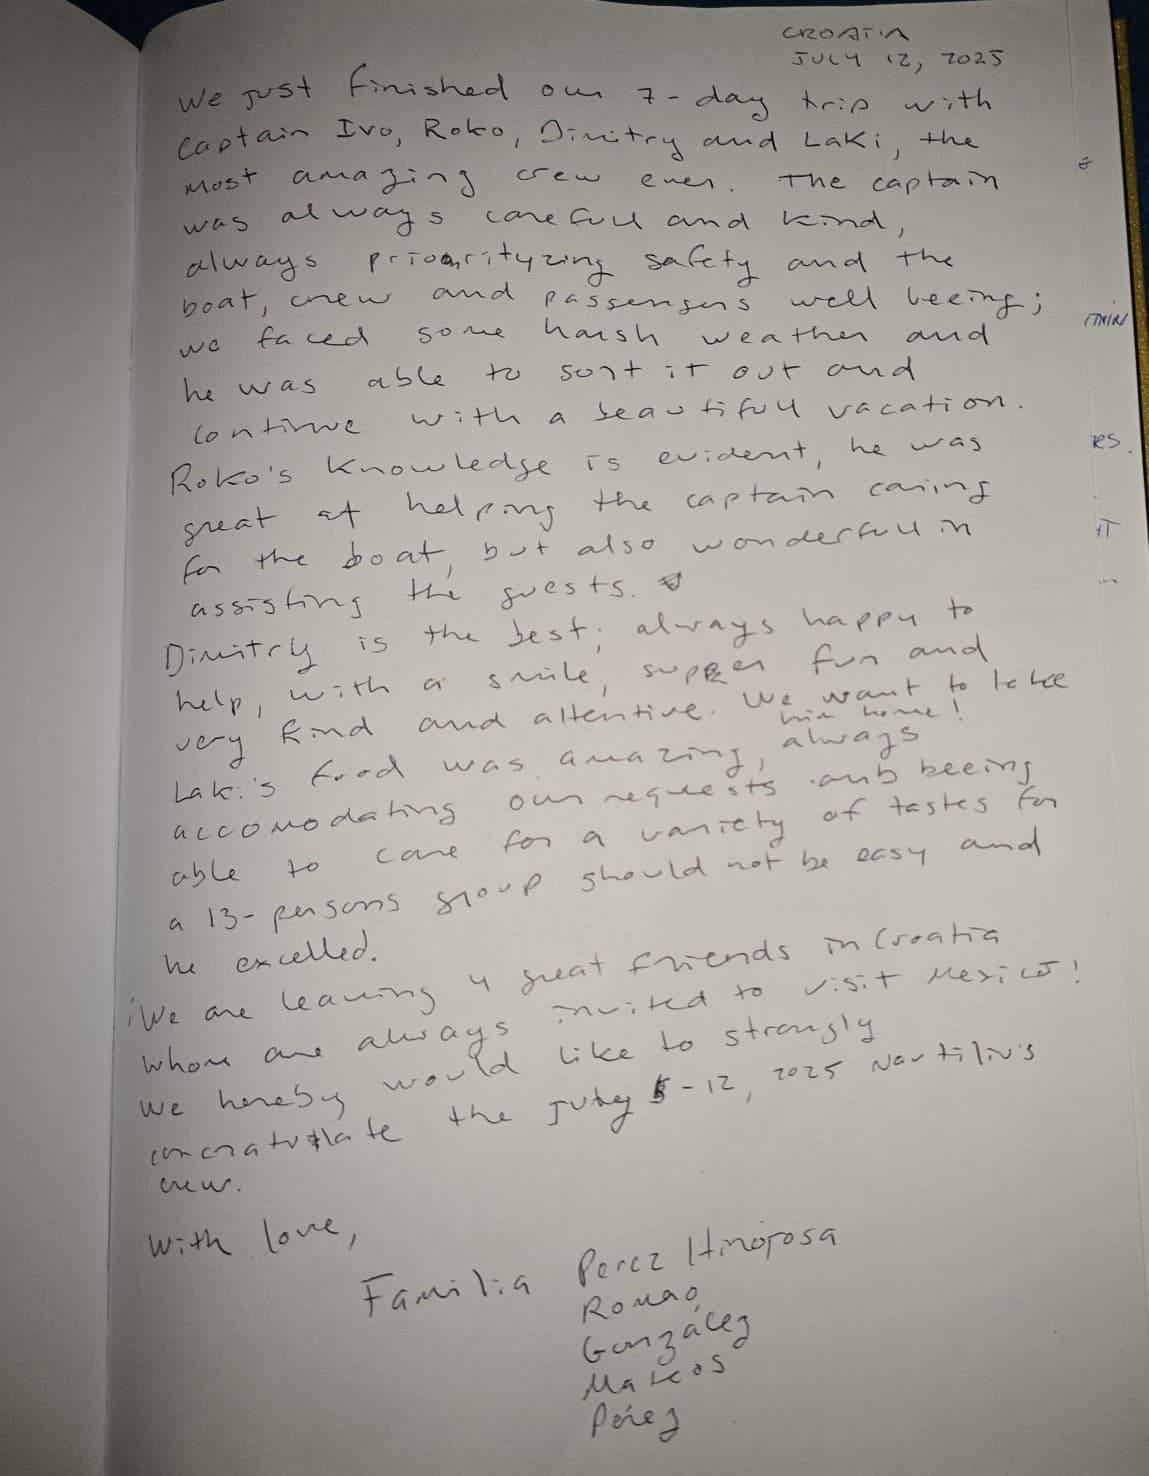 CROATIA
JULY 12, 2025
We just finished our 7-day trip with
Captain Ivo, Roko, Dimitry and Laki, the
most amazing crew ever. The captain
was always carefull and kind,
always priorityzing safety and the
boat, crew and passengers well beeing;
we faced some harsh weather and
he was able to sort it out and
continue with a beautifull vacation.
Roko's knowledge is evident, he was
great at helping the captain caring
for the boat, but also wonderfull in
assisting the guests.
Dimitry is the best; always happy to
help, with a smile, supper fun and
very kind and attentive. We want to take
him home!
Laki's food was amazing, always
accomodating our requests and beeing
able to care for a variety of tastes for
a 13-persons group should not be easy and
he excelled.
¡We are leaving 4 great friends in Croatia
whom are always invited to visit Mexico!
We hereby would like to strongly
concratulate the july 5-12, 2025 Nautiliu's
crew.
With love,
Familia Perez Hinojosa
Romao
González
Mateos
Pérez
RES.